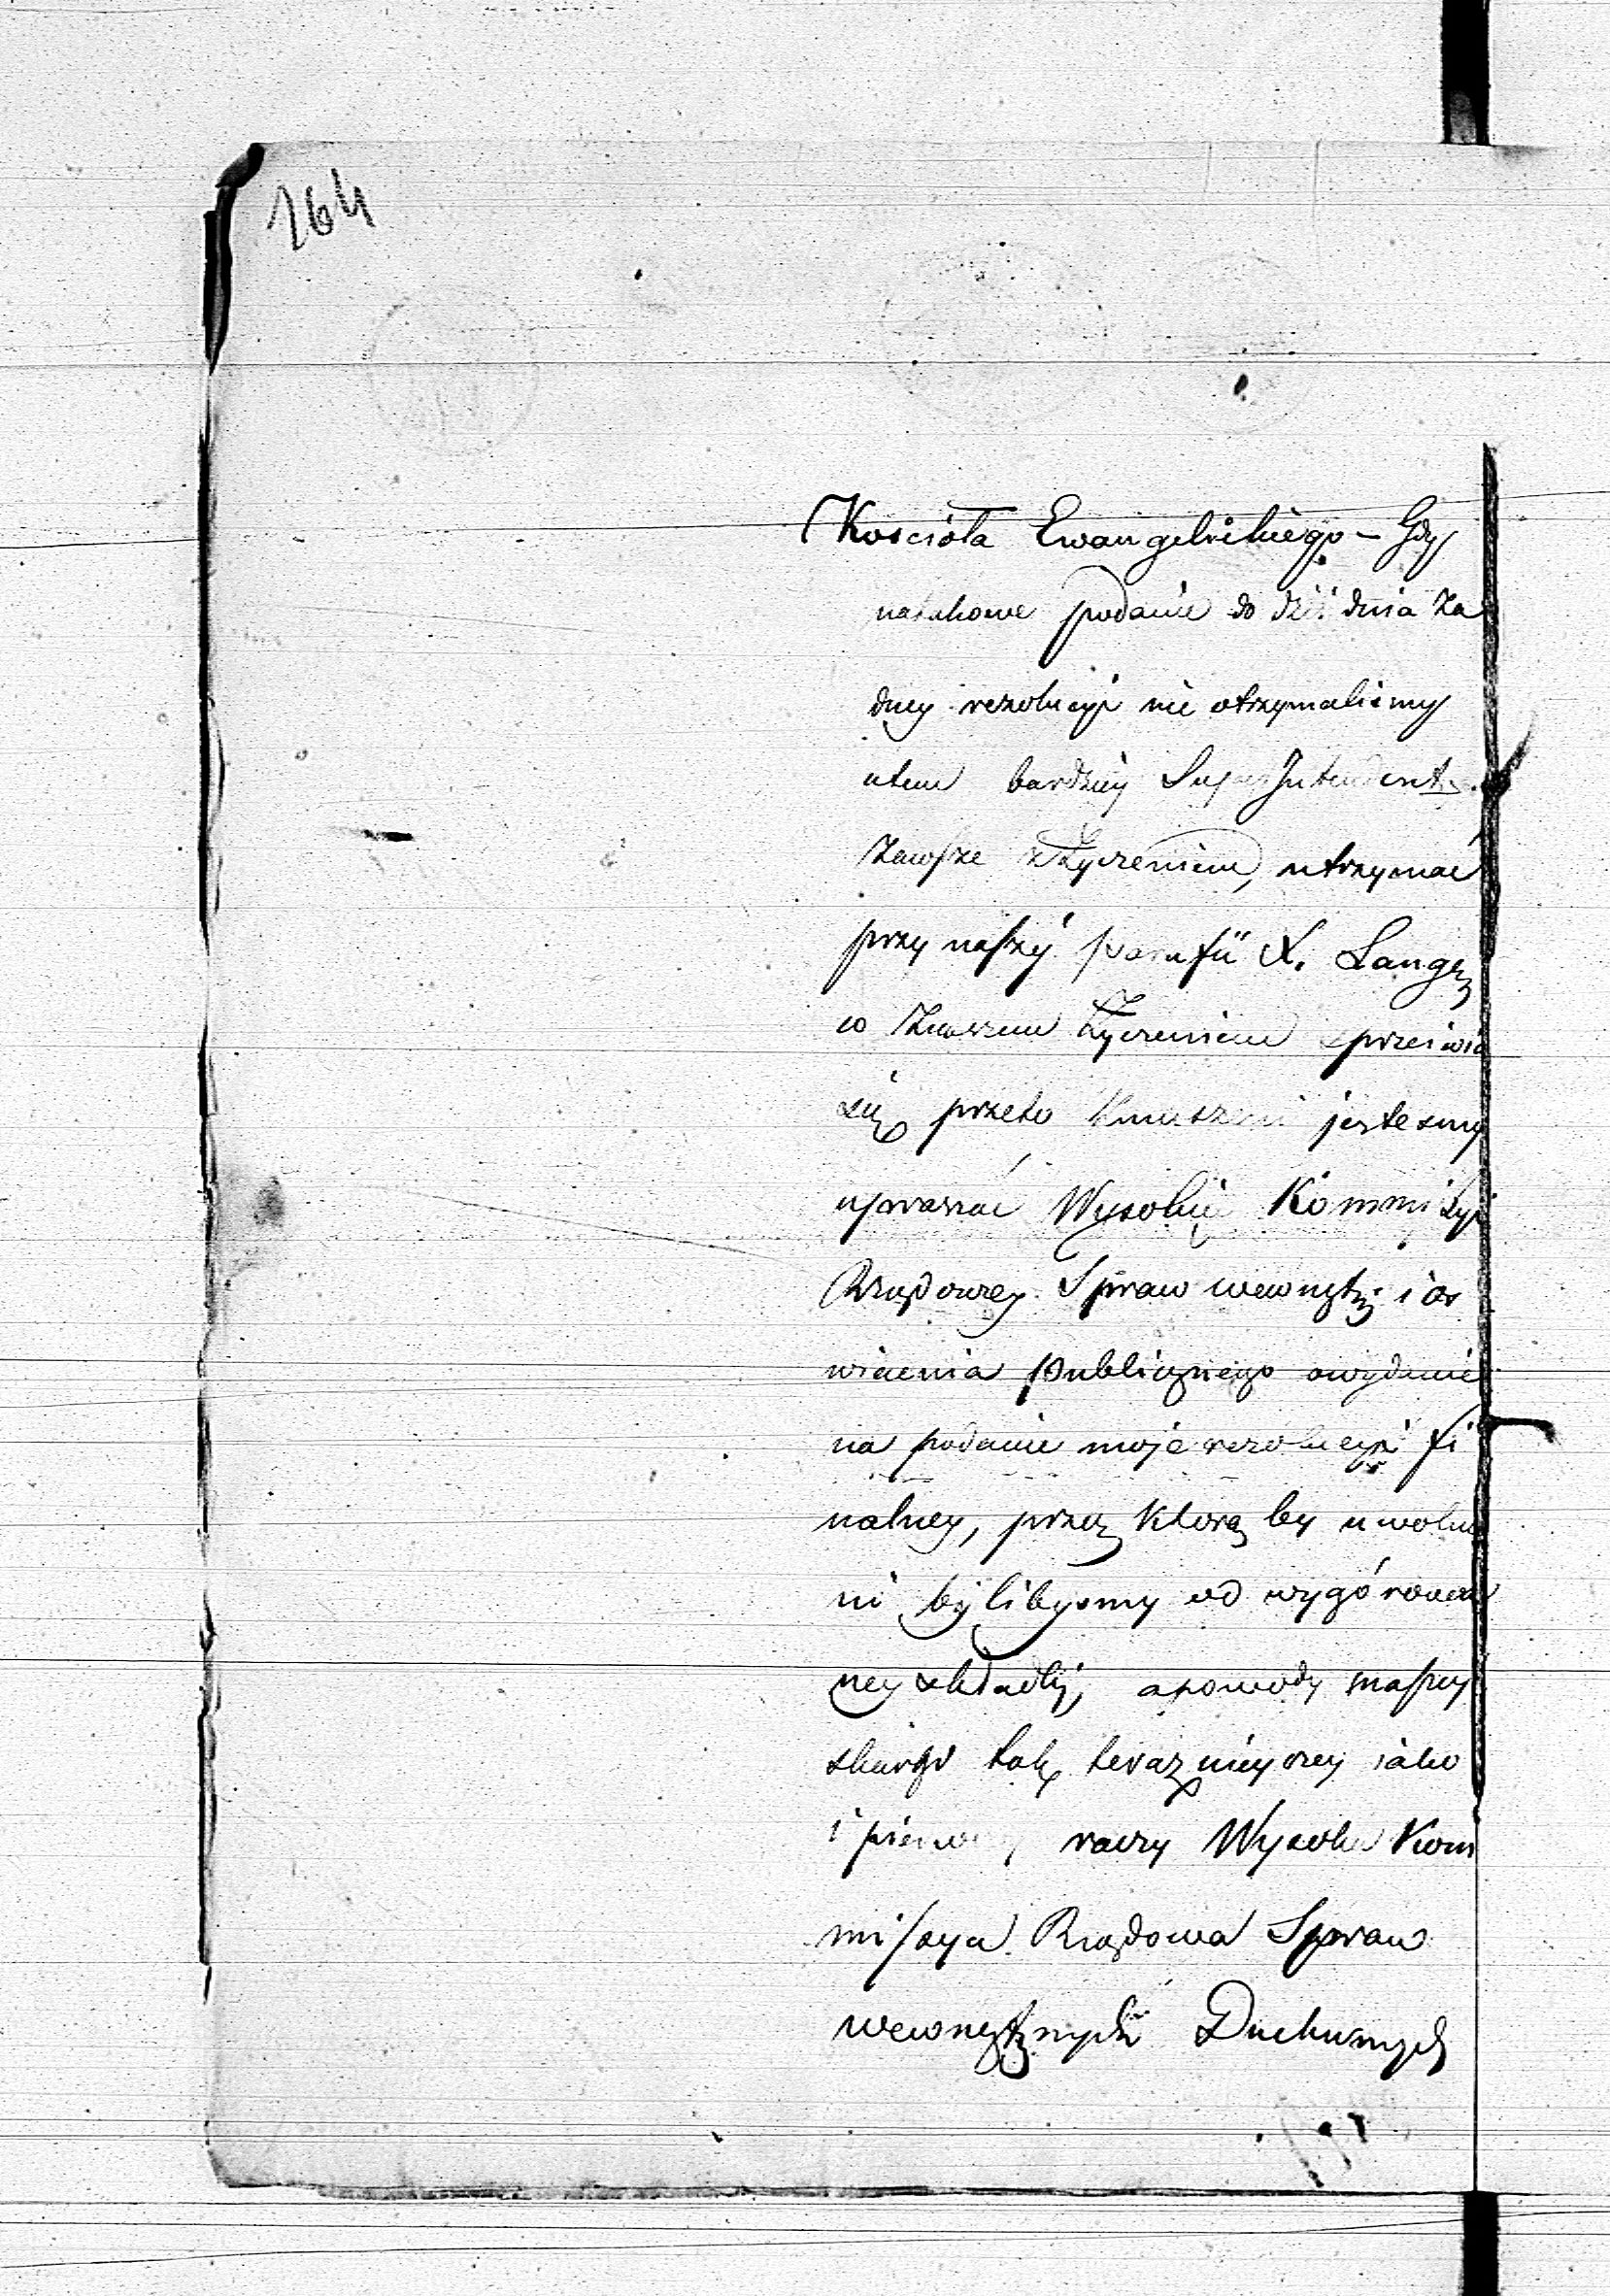 264
Kościoła Ewangelickiego – Gdy
na takowe podanie do dziś dnia ża
dney rezolucyi nie otrzymaliśmy
utem bardziey Super Intendent
zawsze z Życzeniem, utrzymać
przy naszy parafii X. Langę
co Życzeniem sprzeciwia
się przeto zmuszeni jestesmy
upraszać Wysokiej Kommissyi
Rządowey Spraw wewnętrz: i oś
wiecenia Publicznego o wydanie
na podanie moje rezolucyi fi
nalney, przez którą by uwolnie
ni bylibyśmy od wygórowa
ney składki, a powody naszey
skargi tak terazniejszey iako
i pierwszey, raczy Wysoka Kom
missya Rządowa Spraw
wewnętrznych Duchownych